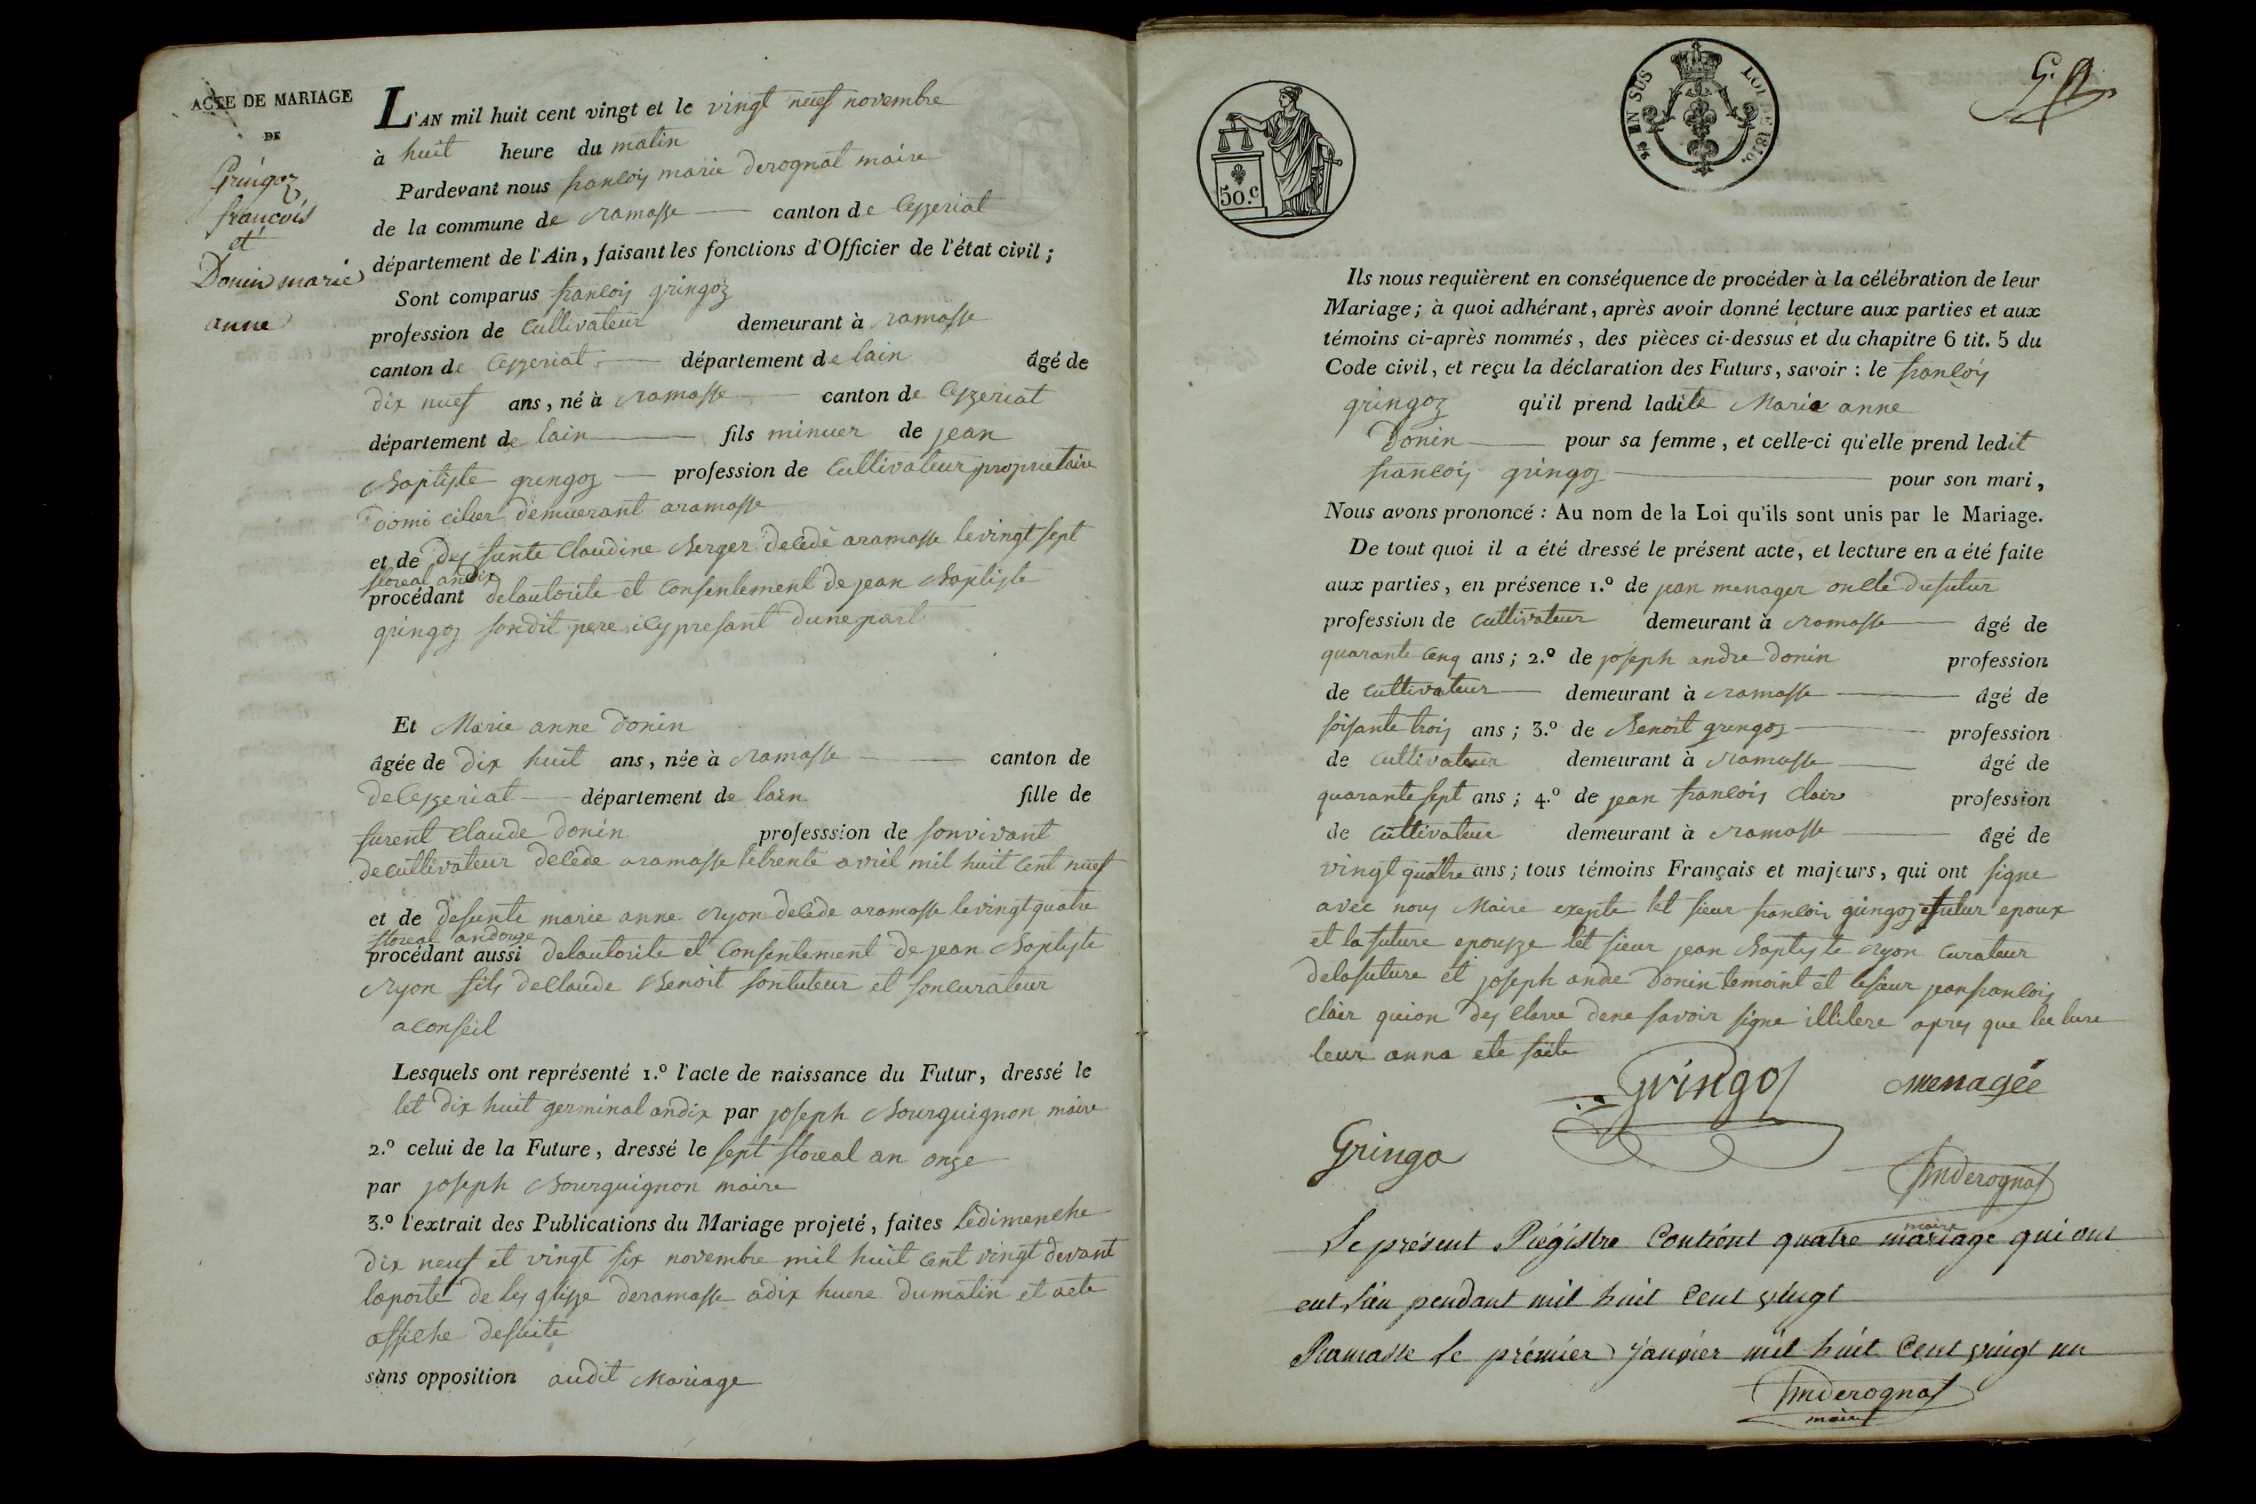 ACTE DE MARIAGE
DE
Gringoz
françois
et
Donin marie
anne
L'AN mil huit cent vingt et le vingt nuef novembre
à huit heure du matin
Pardevant nous francois marie derognat maire
de la commune de ramasse canton de Cezzeriat
département de l'Ain, faisant les fonctions d'Officier de l'état civil ;
Sont comparus francois gringoz
profession de Cultivateur demeurant à ramasse
canton de Cezzeriat département de lain âgé de
dix nuef ans, né à ramasse canton de Cezzeriat
département de lain fils minuer de jean
Baptiste gringoz profession de Cultivateur proprietaire
domicilier demuerant aramasse
et de deffunte Claudine Berger decedé aramasse levingt sept
floreal andix
procédant delautorite et Consentement de jean Baptiste
gringoz sondit pere icy presant dunepart
Et Marie anne donin
âgée de dix huit ans, née à ramasse canton de
deCezzeriat département de lain fille de
furent Claude donin professsion de sonvivant
decultivateur decede aramasse letrente avril mil huit Cent nuef
et de defunte marie anne ryon decede aramasse levingtquatre
floreal andouze
procédant aussi delautorite et Consentement de jean Baptiste
ryon fils deClaude Benoit sontuteur et soncurateur
aconseil
Lesquels ont représenté 1.º l'acte de naissance du Futur, dressé le
let dix huit germinal andix par joseph Bourguignon maire
2.º celui de la Future, dressé le sept floreal an onze
par joseph Bourguignon maire
3.º l'extrait des Publications du Mariage projeté, faites ledimenche
dix neuf et vingt six novembre mil huit cent vingt devant
laporte de les glisze deramasse adix huere dumatin et aete
affiche desuite
sans opposition audit Mariage
50.c
EN SUS
LOI DE 1816.
Ils nous requièrent en conséquence de procéder à la célébration de leur
Mariage ; à quoi adhérant, après avoir donné lecture aux parties et aux
témoins ci-après nommés, des pièces ci-dessus et du chapitre 6 tit. 5 du
Code civil, et reçu la déclaration des Futurs, savoir : le francois
gringoz qu'il prend ladite Marie anne
Donin pour sa femme, et celle-ci qu'elle prend ledit
francois gringoz pour son mari,
Nous avons prononcé : Au nom de la Loi qu'ils sont unis par le Mariage.
De tout quoi il a été dressé le présent acte, et lecture en a été faite
aux parties, en présence 1.º de jean menager oncle dufutur
profession de cultivateur demeurant à ramasse âgé de
quarante cenq ans ; 2.º de joseph andre donin profession
de cultivateur demeurant à ramasse âgé de
soisante trois ans ; 3.º de Benoit gringoz profession
de cultivateur demeurant à ramasse âgé de
quarante sept ans ; 4.º de jean francois clair profession
de cultivateur demeurant à ramasse âgé de
vingt quatre ans ; tous témoins Français et majeurs, qui ont signe
avec nous Maire exepte let sieur francois gringoz futur epoux
et la future epousze let sieur jean Baptiste ryon curateur
delafuture et joseph ande donin temoint et lesieur jeanfrancois
clair quion des clarre dene savoir signe illitere apres que lecture
leur anna ete faite
Gringoz menagée
Gringo
fmderognat
maire
Le présent Régistre Contiént quatre mariage qui ont
eut lieu pendant mil huit Cent vingt
Ramasse le prémiér janviér mil huit Cent vingt un
fmderognat
maire